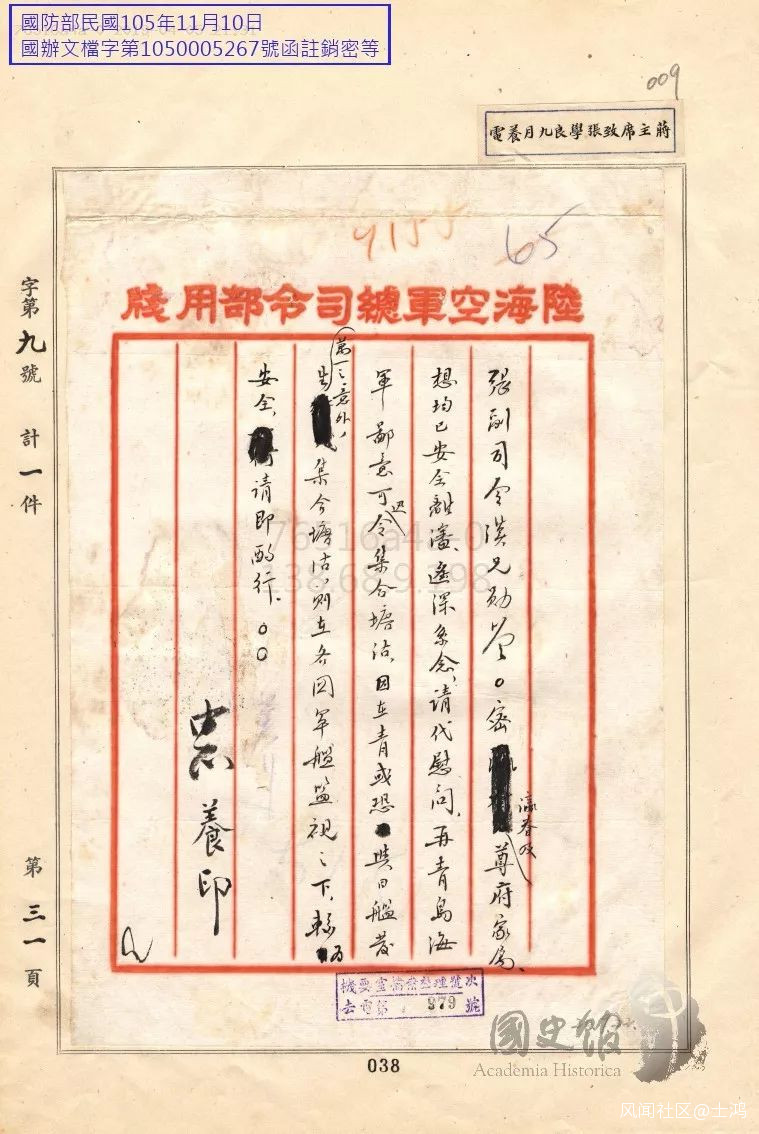 國防部民國105年11月10日
國辦文檔字第1050005267號函註銷密等
009
蔣主席致張學良九月養電
4155
65
陸海空軍總司令部用牋
張副司令漢兄勛鑒。密
瀛眷及
尊府家屬、
想均已安全離瀋、遙深系念、請代慰問、再青島海
軍鄙意可
迅
令集合塘沽、因在青或恐與日艦發
生
萬一之意外、
集合塘沽、則在各國軍艦監視之下、較為
安全、請即酌行、。。
中正養印
字第九號 計一件
第三一頁
機要室檔案整理號次
去電第 379 號
038
國史館
Academia Historica
风闻社区@士鸿